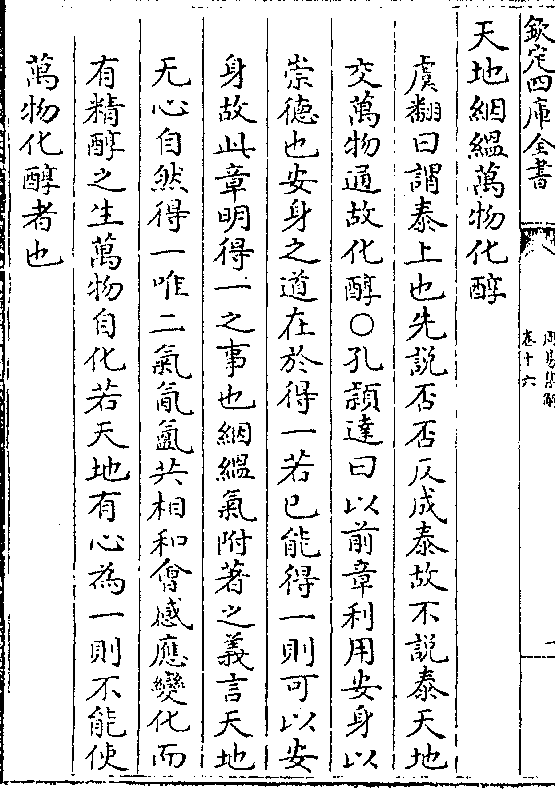 欽定四庫全書
周易集解
卷十六
天地絪縕萬物化醇
虞翻曰謂泰上也先説否否反成泰故不説泰天地
交萬物通故化醇○孔頴達曰以前章利用安身以
崇德也安身之道在於得一若已能得一則可以安
身故此章明得一之事也絪縕氣附著之義言天地
无心自然得一唯二氣氤氳共相和會感應變化而
有精醇之生萬物自化若天地有心為一則不能使
萬物化醇者也